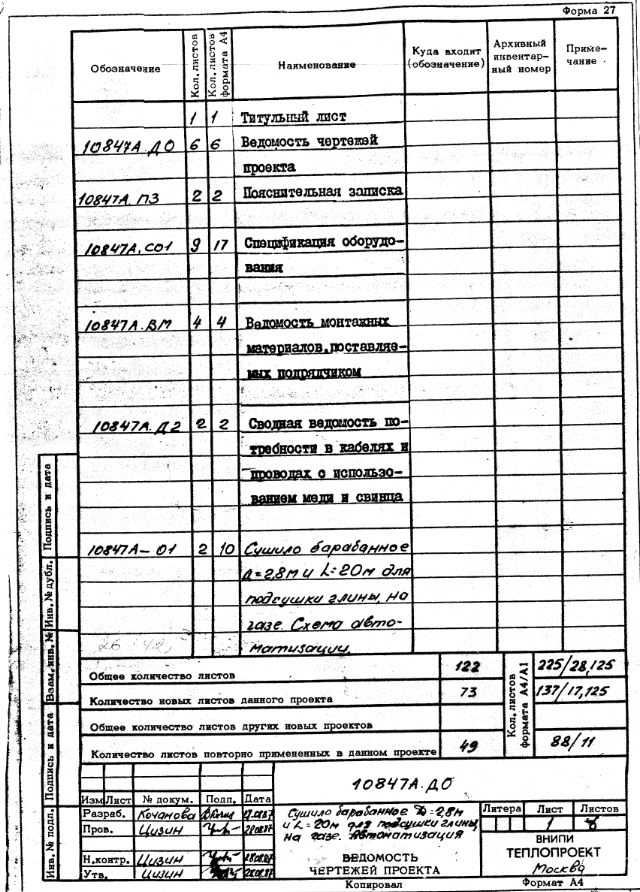 Форма 27
Обозначение
Кол. листов
Кол. листов формата А4
Наименование
Куда входит (обозначение)
Архивный инвентарный номер
Примечание
1 1 Титульный лист
10847А.Д0 6 6 Ведомость чертежей
проекта
10847А.ПЗ 2 2 Пояснительная записка
10847А.СО1 9 17 Спецификация оборудо-
вания
10847А.ВМ 4 4 Ведомость монтажных
материалов, поставляе-
мых подрядчиком
10847А.Д2 2 2 Сводная ведомость по-
требности в кабелях и
проводах с использо-
ванием меди и свинца
10847А-01 2 10 Сушило барабанное
Д=2,8м и L=20м для
подсушки глины, на
газе. Схема авто-
матизации.
Общее количество листов 122
Количество новых листов данного проекта 73
Общее количество листов других новых проектов
Количество листов повторно примененных в данном проекте 49
Кол. листов формата А4/А1
225/28,125
137/17,125
88/11
Инв. № подл.
Подпись и дата
Взам. инв. №
Инв. № дубл.
Подпись и дата
10847А.Д0
Изм Лист № докум. Подп. Дата
Разраб. Кочанова
Пров. Цизин
Н.контр. Цизин
Утв. Цизин
Сушило барабанное D=2,8м
и L=20м для подсушки глины,
на газе. Автоматизация
ВЕДОМОСТЬ
ЧЕРТЕЖЕЙ ПРОЕКТА
Литера Лист Листов
1
ВНИПИ
ТЕПЛОПРОЕКТ
Москва
Копировал Формат А4